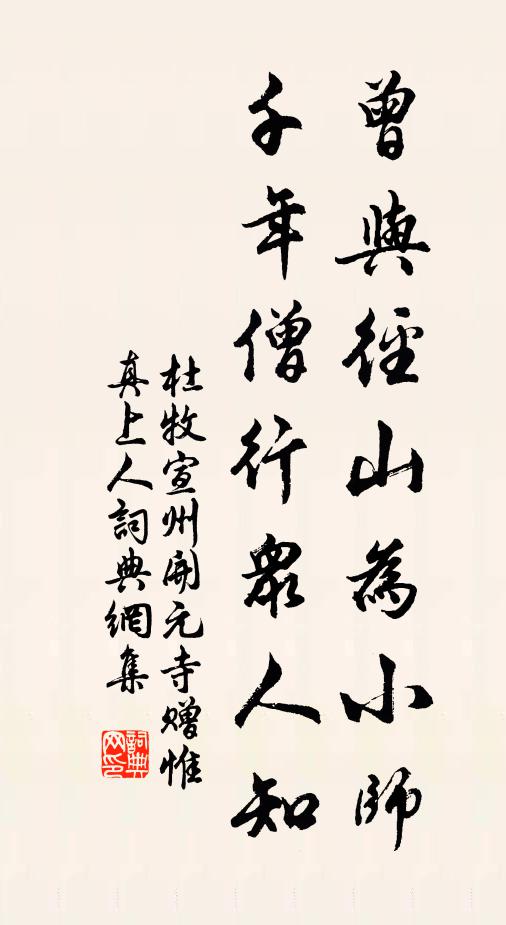 曾與徑山為小師
千年僧行眾人知
杜牧宣州開元寺贈惟
真上人詞典網集
詞典
网印